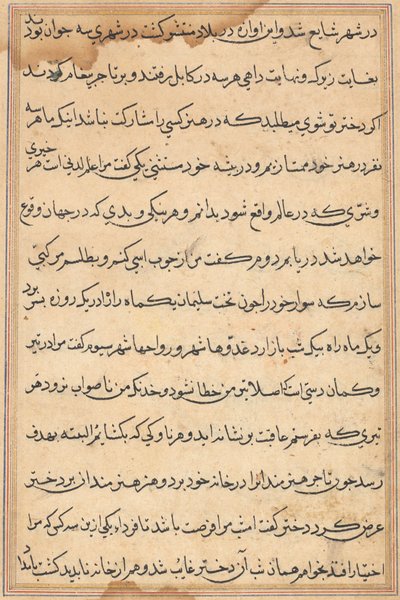 در شهر شایع شد و این اوازه در بلاد منتشر کشت در شهری سه جوان بودند
بغایت زیرک و نهایت داهی هر سه در کابل رفتند و بر تاجر پیغام کردند
اکر دختر تو شوی میطلبد که در هنر کسی را مشارکت نباشد اینک ما هر سه
نفر در هنر خود ممتازیم و در پیشه خود مستثنی یکی کفت مرا علم لدنی است هر خیری
و شری که در عالم واقع شود بدانم و هر نیکی و بدی که در جهان وقوع
خواهد شد دریابم دوم کفت من از چوب اسپی کنم و بطلسم مرکبی
سازم که سوار خود را چون تخت سلیمان یکماه راه را در یک روزه بسر برد
و یک ماه راه بیک شب باز ارد غدوها شهر و رواحها شهر سیوم کفت مرا در تیر
و کمان دستی است که اصلا تیر من خطا نشود و خدنک من ناصواب نرود هر
تیری که بفرستم عاقبت بر نشانه اید و هر ناوکی که بکشایم البته بهدف
رسد چون تاجر هنرمندانرا در خانه خود برد و هنر هنرمندان بر دختر
عرض کرد دختر کفت امشب مرا فرصت باشد تا فردا یکی ازین سه کس که مرا
اختیار افتد بخواهم همان شب آن دختر غایب شد و هم از خانه ناپدید کشت بامداد